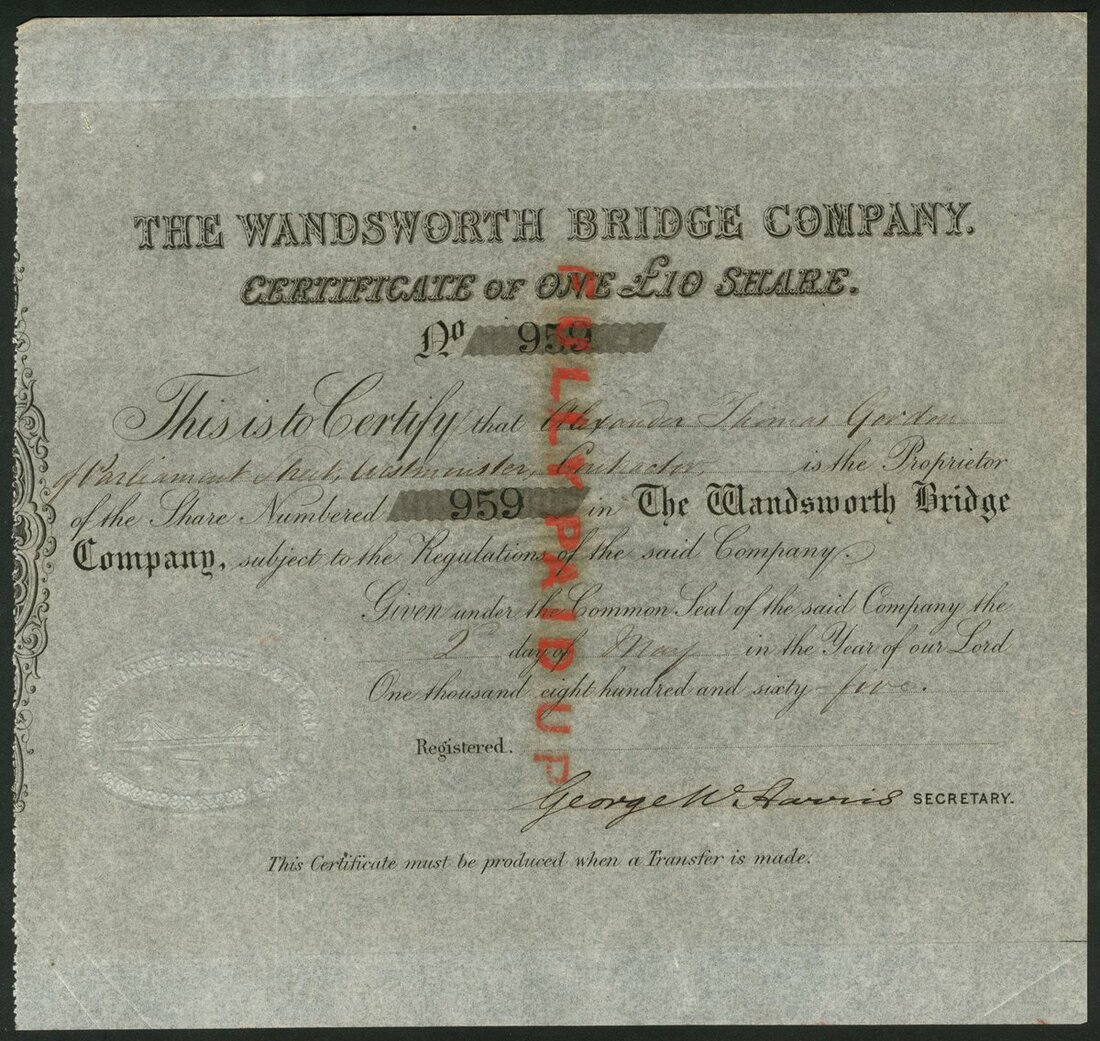 THE WANDSWORTH BRIDGE COMPANY.
CERTIFICATE OF ONE £10 SHARE.
No 959
This is to Certify that Alexander Thomas Gordon
of Parliament Street, Westminster, Contractor, is the Proprietor
of the Share Numbered 959 in The Wandsworth Bridge
Company, subject to the Regulations of the said Company.
Given under the Common Seal of the said Company the
2nd day of May in the Year of our Lord
One thousand eight hundred and sixty-five.
Registered.
George W. Harris SECRETARY.
This Certificate must be produced when a Transfer is made.
FULLY PAID UP